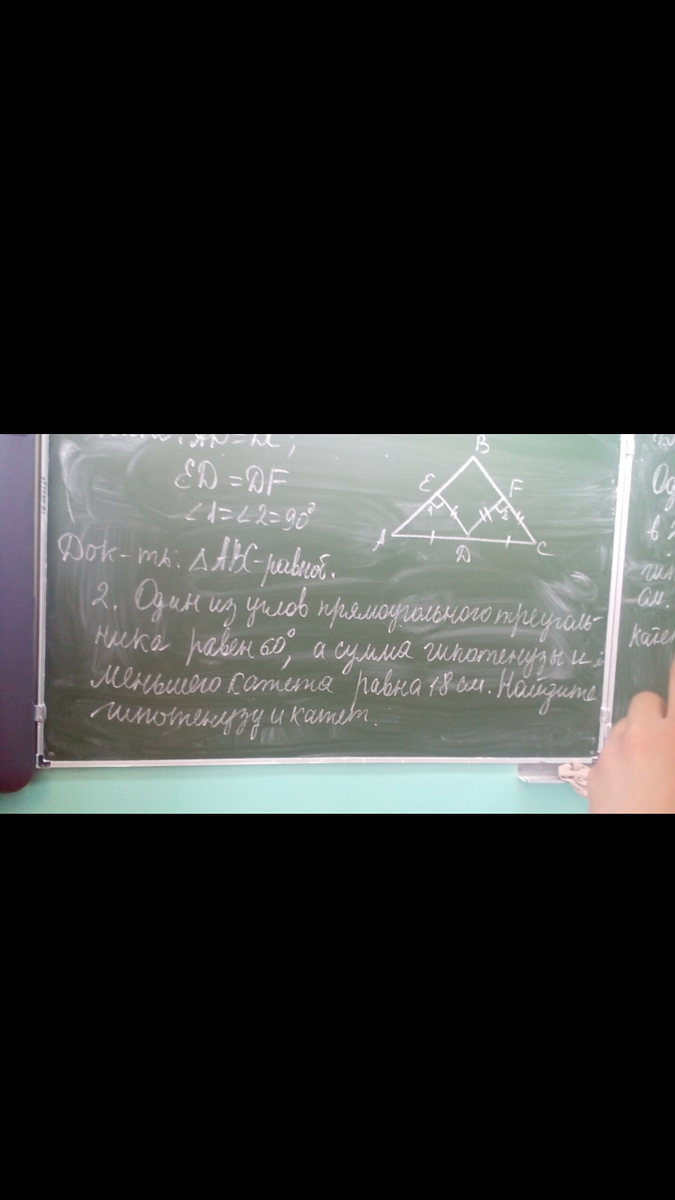 ED = DF
∠1=∠2=90°
Док-ть: △ABC-равноб.
B
E
F
1
2
A
D
C
2. Один из углов прямоугольного треуголь-
ника равен 60°, а сумма гипотенузы и
меньшего катета равна 18 см. Найдите
гипотенузу и катет.
Од
в
гип
см.
кате